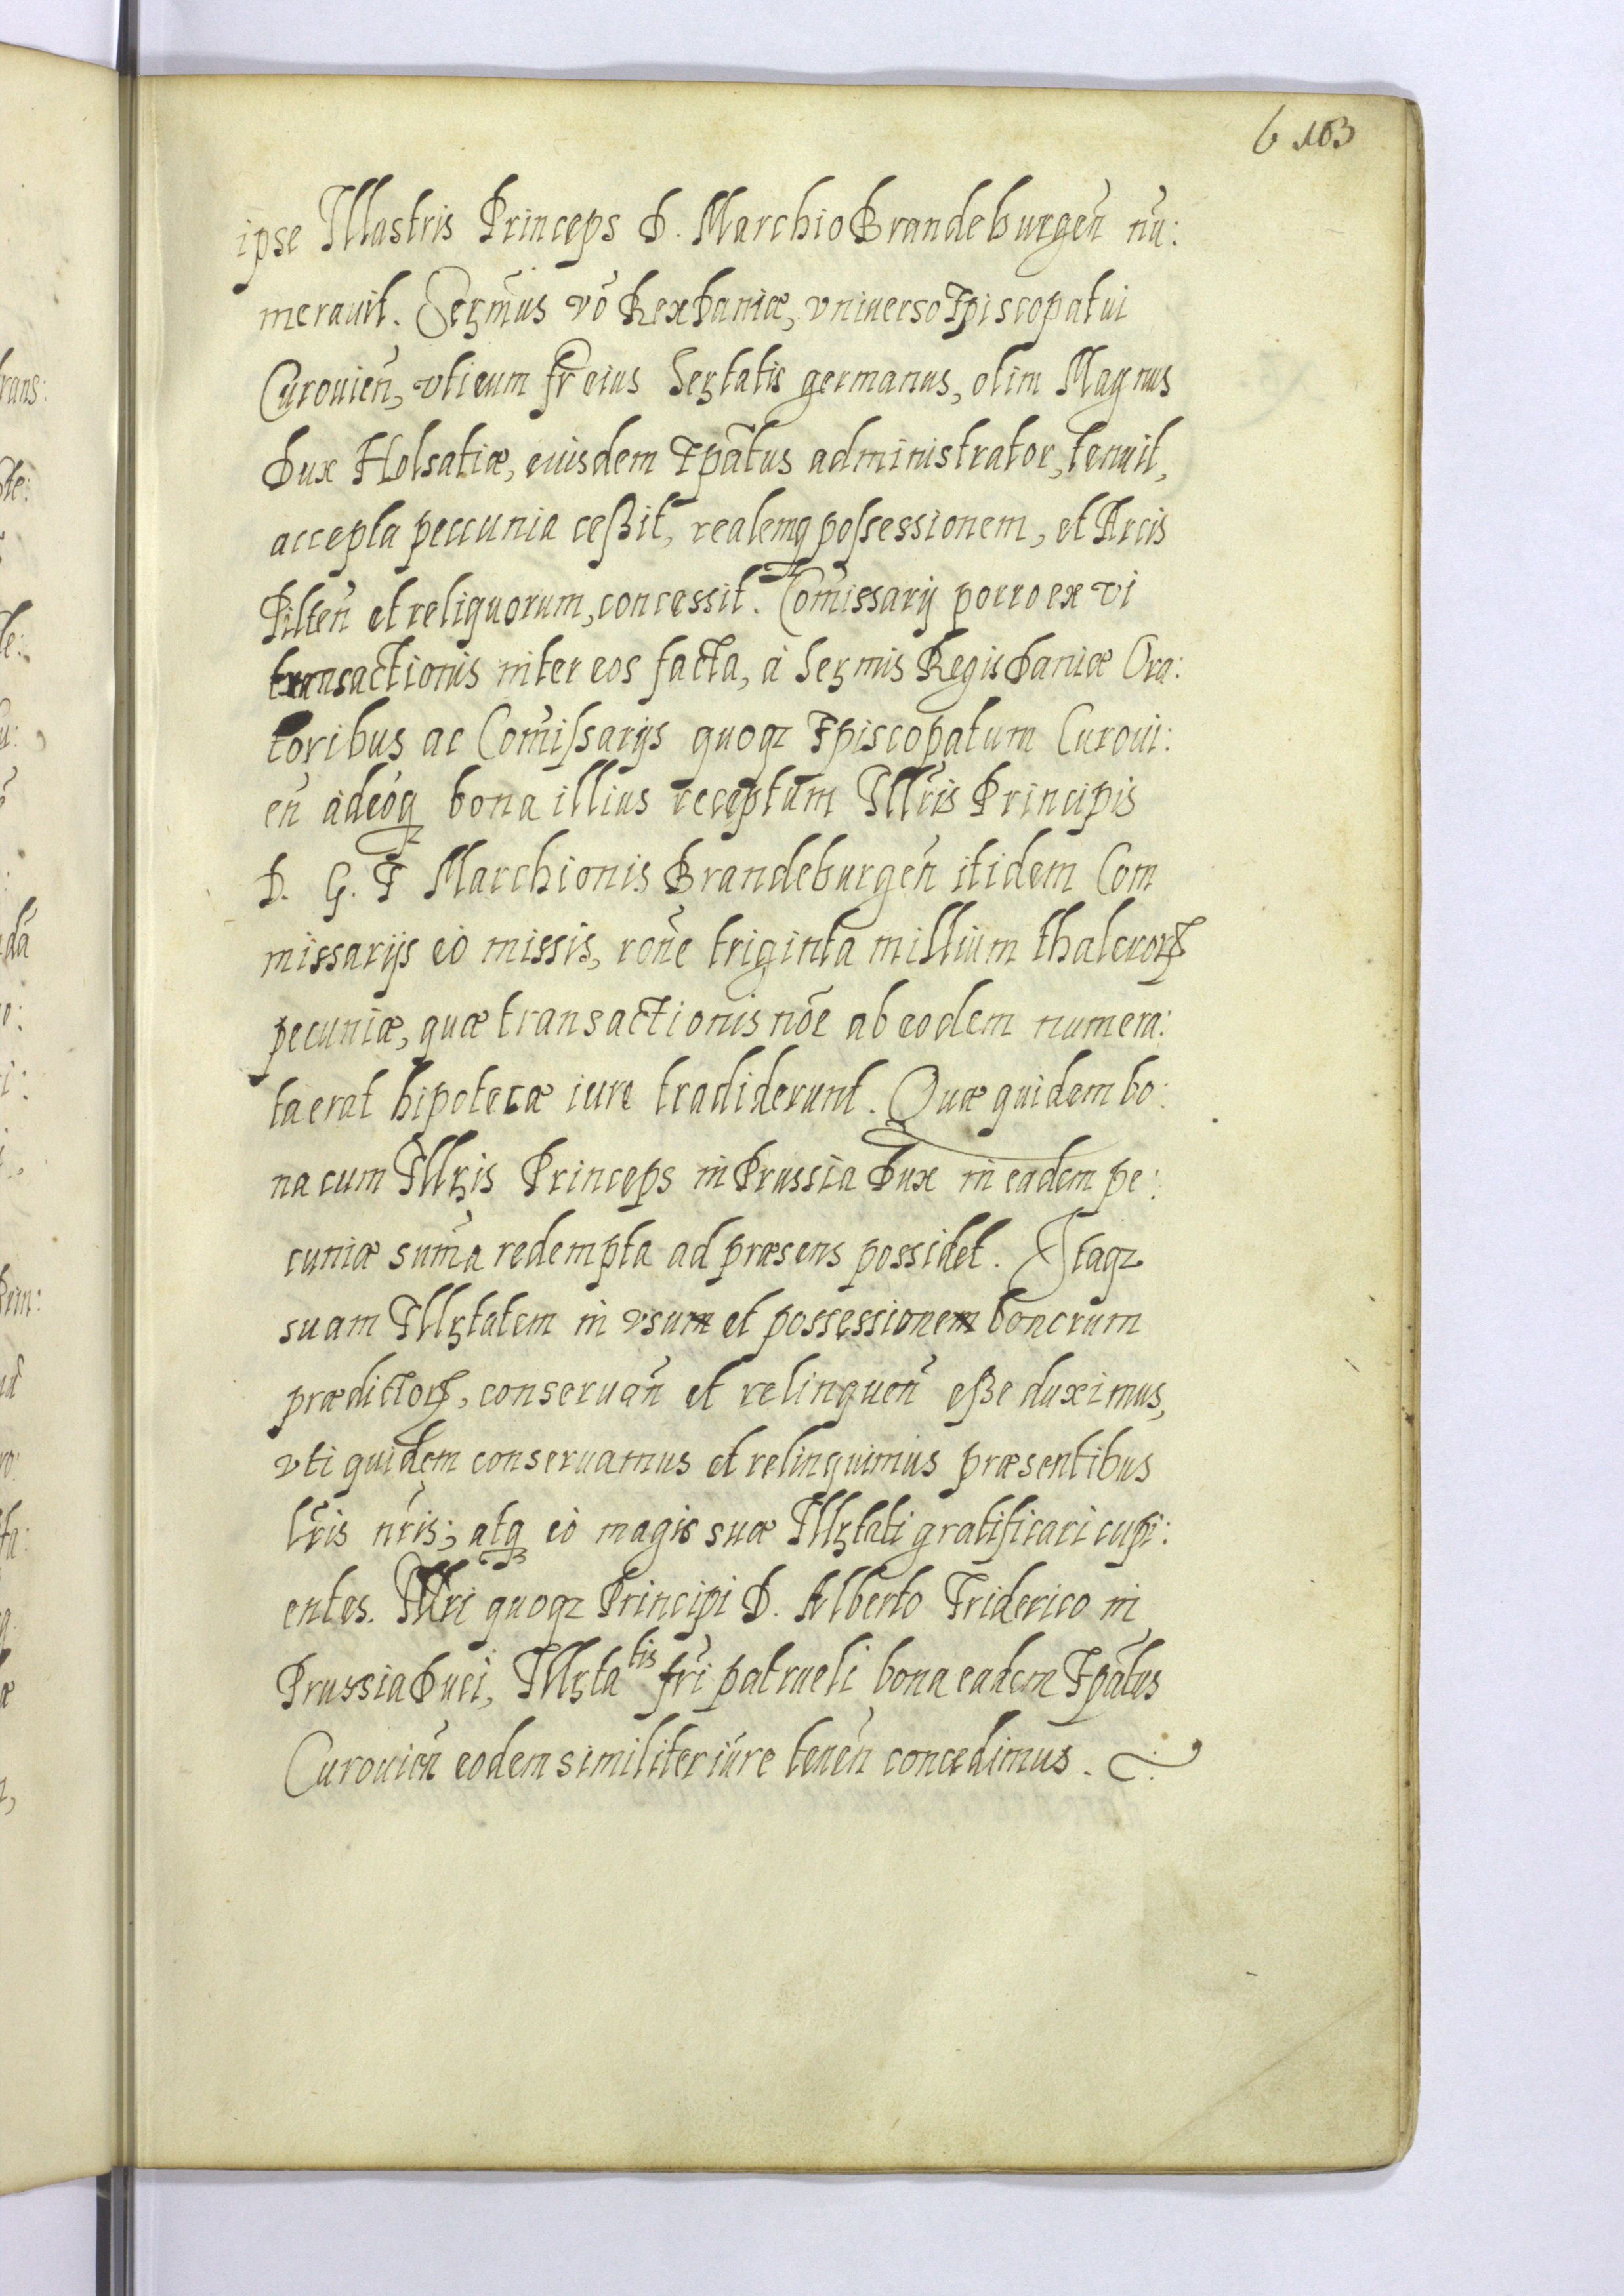 6 103
ipse Illustris Princeps D. Marchio Brandeburgen̄ nu:
merauit. Serm̄us vō Rex Daniæ, vniuerso Episcopatui
Curouien̄, vti eum fr̄ eius Sertatis germanus, olim Magnus
Dux Holsatiæ, eiusdem Ep̄atus administrator, tenuit,
accepta peccunia ceßit, realemq possessionem, et Arcis
Pilten̄ et reliquorum, concessit. Com̄issarij porro ex vi
transactionis inter eos facta, à Sermis Regis Daniæ Ora:
toribus ac Com̄issarijs quoqz Episcopatum Curoui:
en̄ adeoq bona illius receptum Illr̄is Principis
D. G. F Marchionis Brandeburgen̄ itidem Com
missarijs eò missis, rōne triginta millium thaleroꝝ
pecuniæ, quæ transactionis nōe ab eodem numera:
ta erat hipotecæ iure tradiderunt. Quæ quidem bo:
na cum Illris Princeps in Prussia Dux in eadem pe:
cuniæ sum̄a redempta ad præsens possidet. Itaqz
suam Illrtatem in vsum et possessionem bonorum
prædictoꝝ, conseruan̄ et relinquen̄ eße duximus,
vti quidem conseruamus et relinquimus præsentibus
lr̄is nr̄is; atq eò magis suæ Illrtati gratificari cupi:
entes. Illri quoqz Principi D. Alberto Friderico in
Prussia Duci, Illrtatis fr̄i patrueli bona eadem Ep̄atus
Curouien̄ eodem similiter iure tenen̄ concedimus.